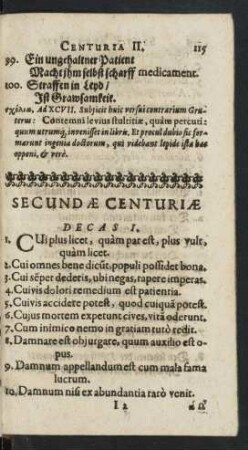 CENTURIA II. 115
99. Ein ungehaltner Patient
Macht jhm selbst scharff medicament.
100. Straffen in Leyd/
Jst Grawsamkeit.
σχόλια. Ad XCVII. Subjicit huic versui contrarium Gru-
terus: Contemni levius stultitiæ, quàm percuti:
quum utrumq; invenisset in libris. Et procul dubio sic for-
marunt ingenia doctorum, qui videbant lepide ista hac
opponi, & verè.
SECUNDÆ CENTURIÆ
DECAS I.
1. CUi plus licet, quàm par est, plus vult,
quàm licet.
2. Cui omnes bene dicūt, populi possidet bona.
3. Cui sēper dederis, ubi negas, rapere imperas.
4. Cuivis dolori remedium est patientia.
5. Cuivis accidere potest, quod cuiquā potest.
6. Cujus mortem expetunt cives, vitā oderunt.
7. Cum inimico nemo in gratiam tutò redit.
8. Damnare est objurgare, quum auxilio est o-
pus.
9. Damnum appellandum est cum mala fama
lucrum.
10. Damnum nisi ex abundantia rarò venit.
I 2